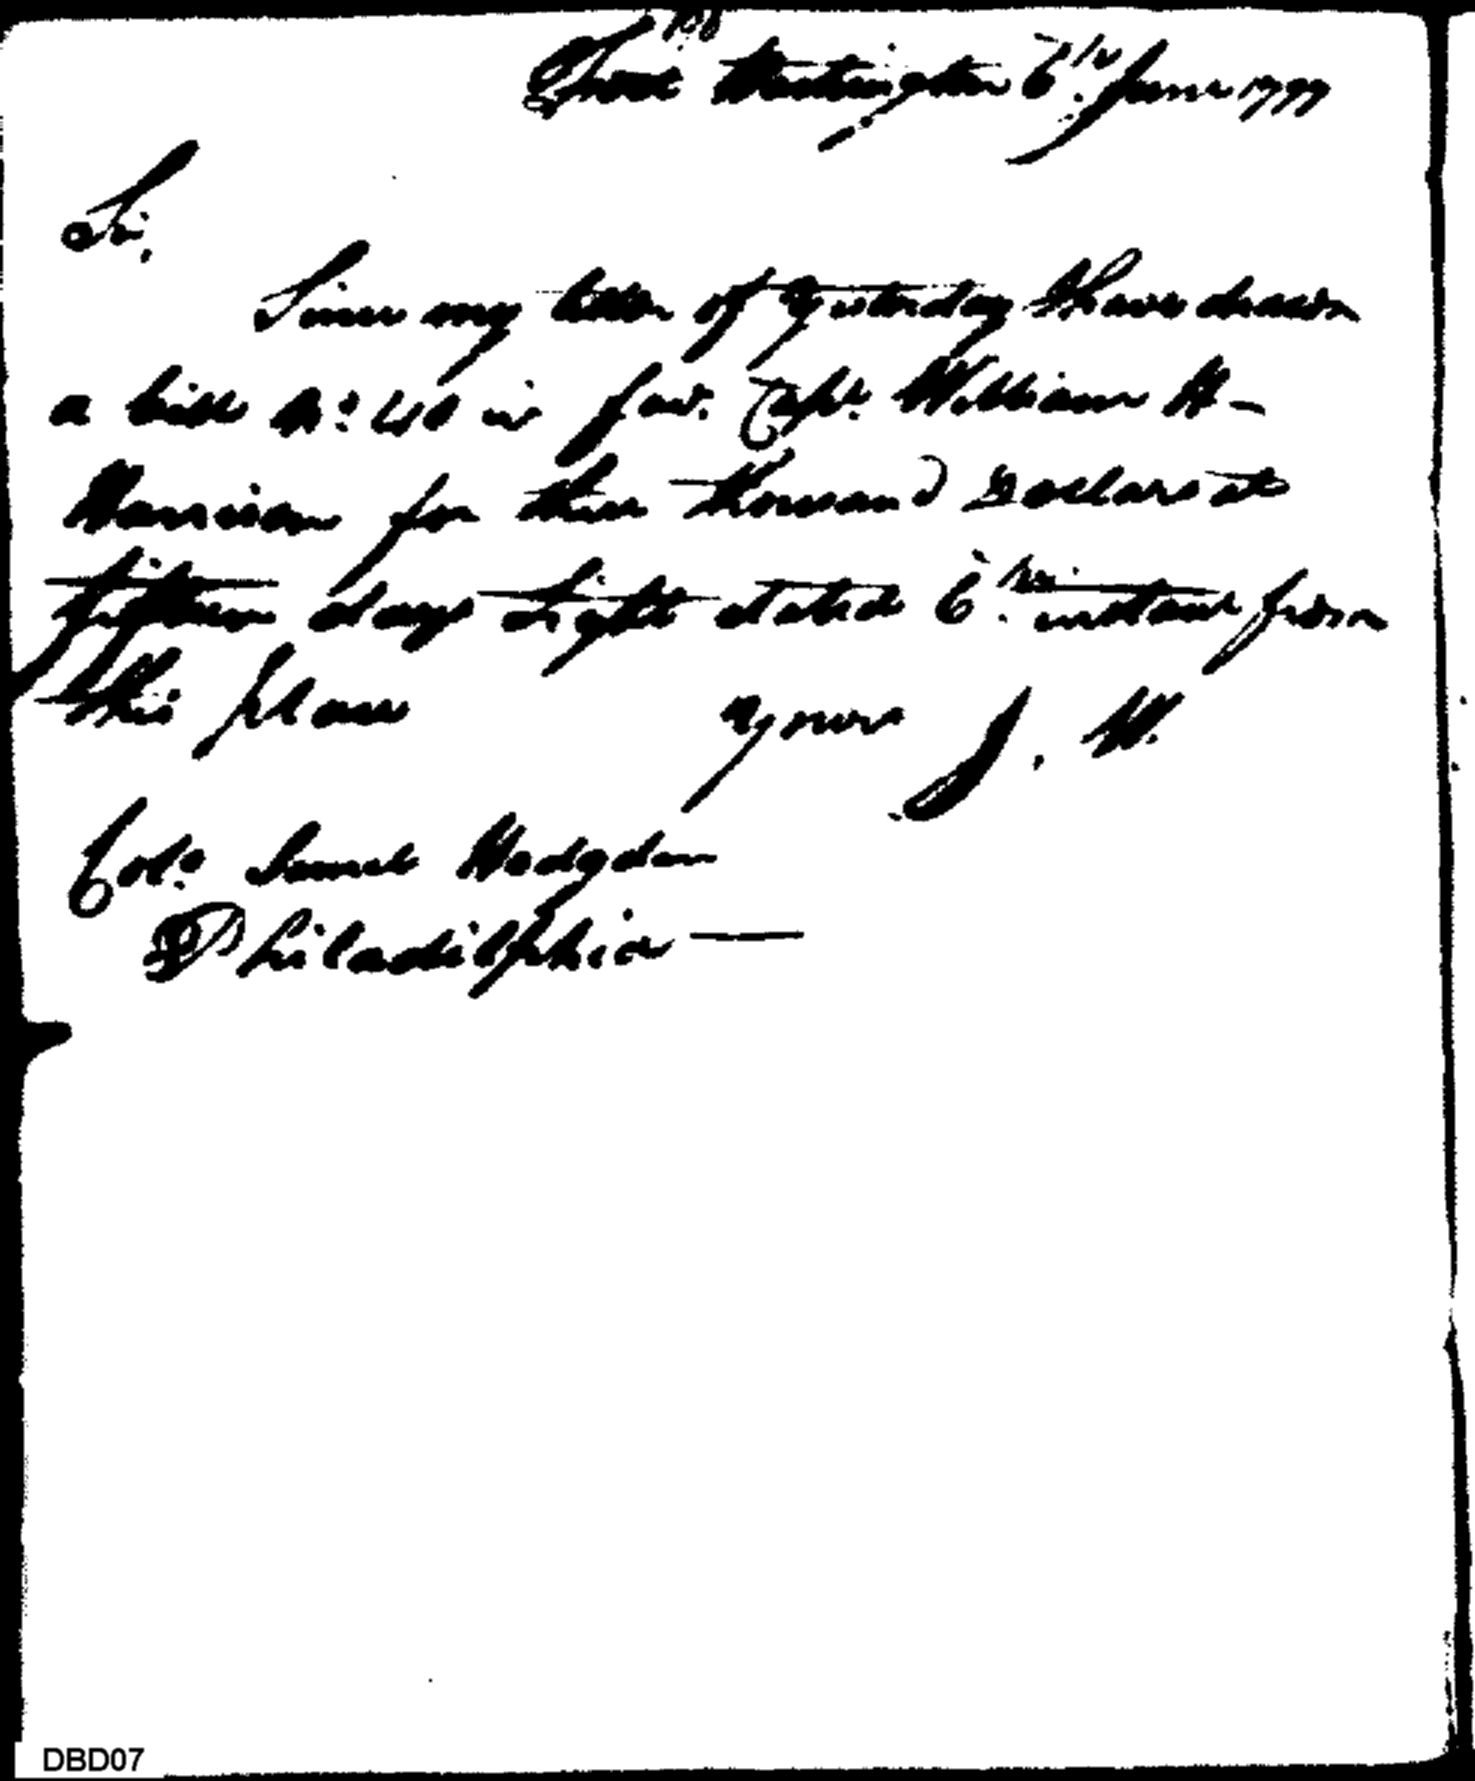 Fort Washington 6th June 1797
Sir,
Since my letter of yesterday I have drawn
a bill No: 40 in fav. Capt. William H-
Harrison for three thousand Dollars at
fifteen days sight dated 6th instant from
this place Yours J. W.
Colo. Samel Hodgdon
Philadelphia —
DBD07